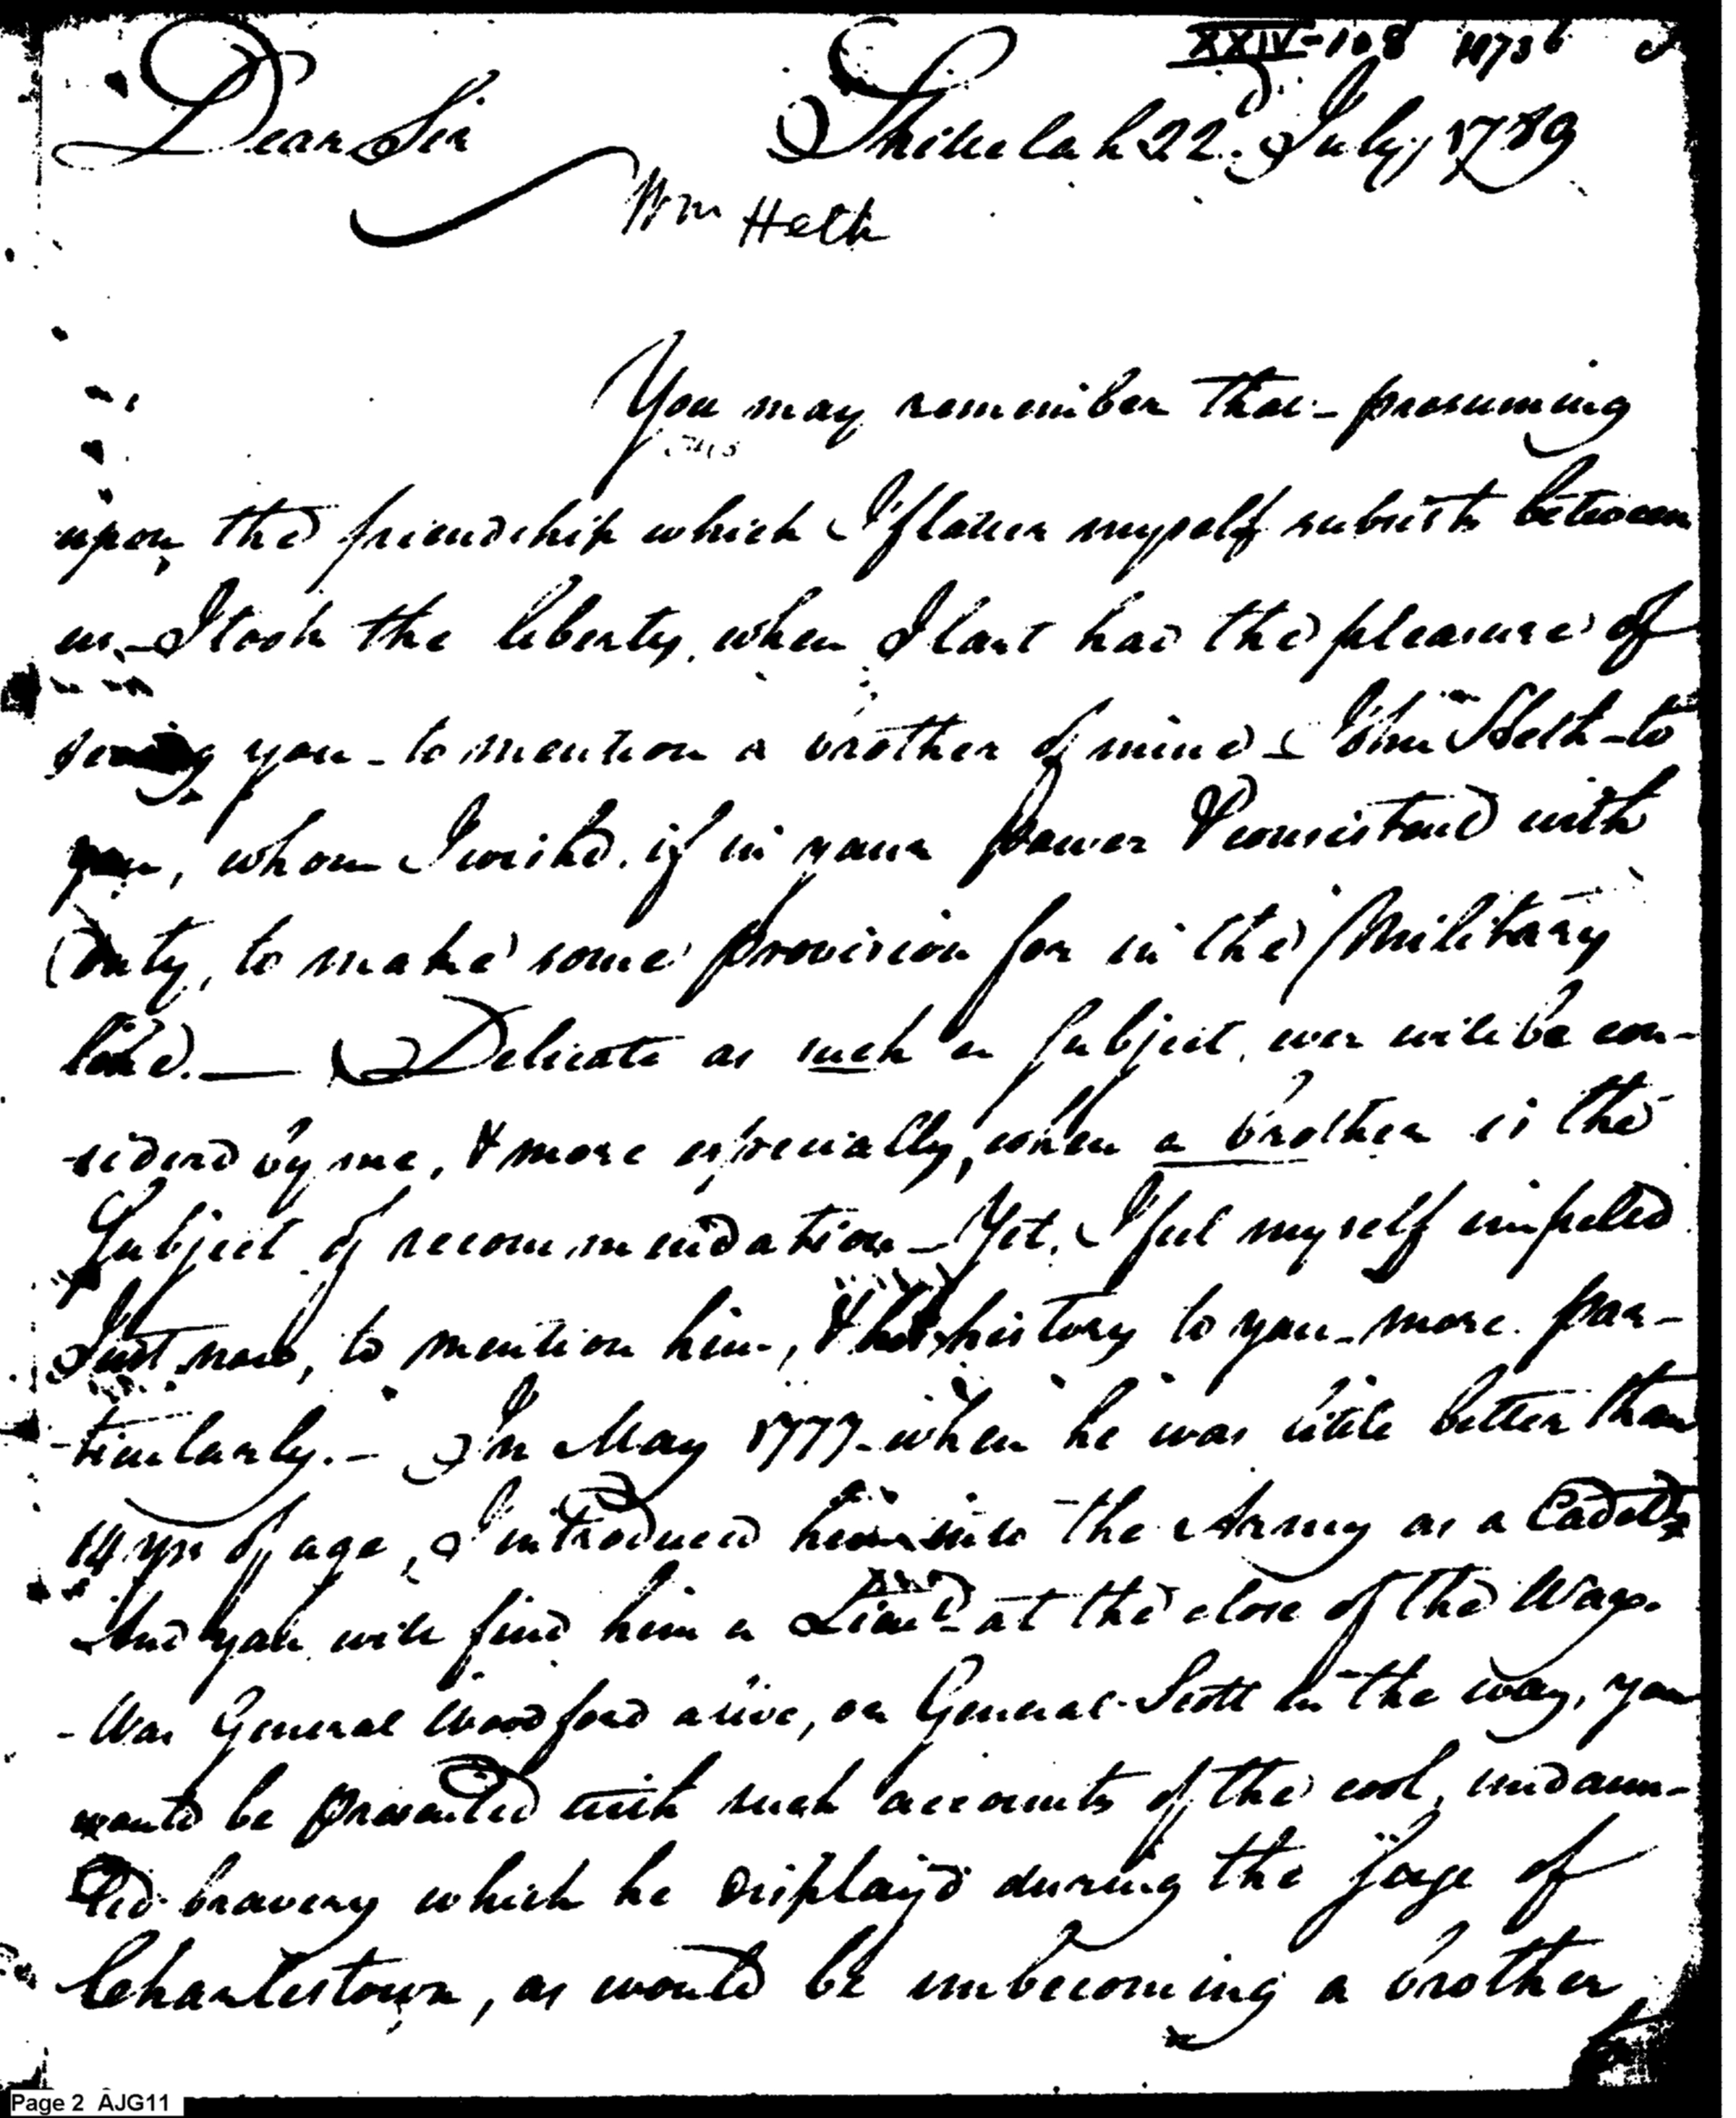 XXIV-108 10736
Dear Sir Shilelah 22d. July, 1789
Wm Heth
You may remember that - presuming
upon, the friendship which I flatter myself subsists between
us - I took the liberty, when I last had the pleasure of
seeing you - to mention a brother of mine - John Heth - to
you, whom I wish'd, if in your power & consistend with
Duty, to make some provision for in the Military
line. — Delicate as such a Subject, ever will be con-
-siderd by me, & more especially, when a brother is the
Subject of recommendation - Yet, I feel myself impeled
Just now, to mention him, & his history to you - more par-
-ticularly. - In May 1777 - when he was little better than
14 yrs of age, I introduced him into the Army as a Cadet,
And you will find him a Lieut. at the close of the War.
- Was General Woodford alive, or General Scott in the way, you
would be presented with such accounts of the cool, undaun-
ted bravery which he display'd during the seige of
Charlestown, as would be unbecoming a brother
Page 2 AJG11